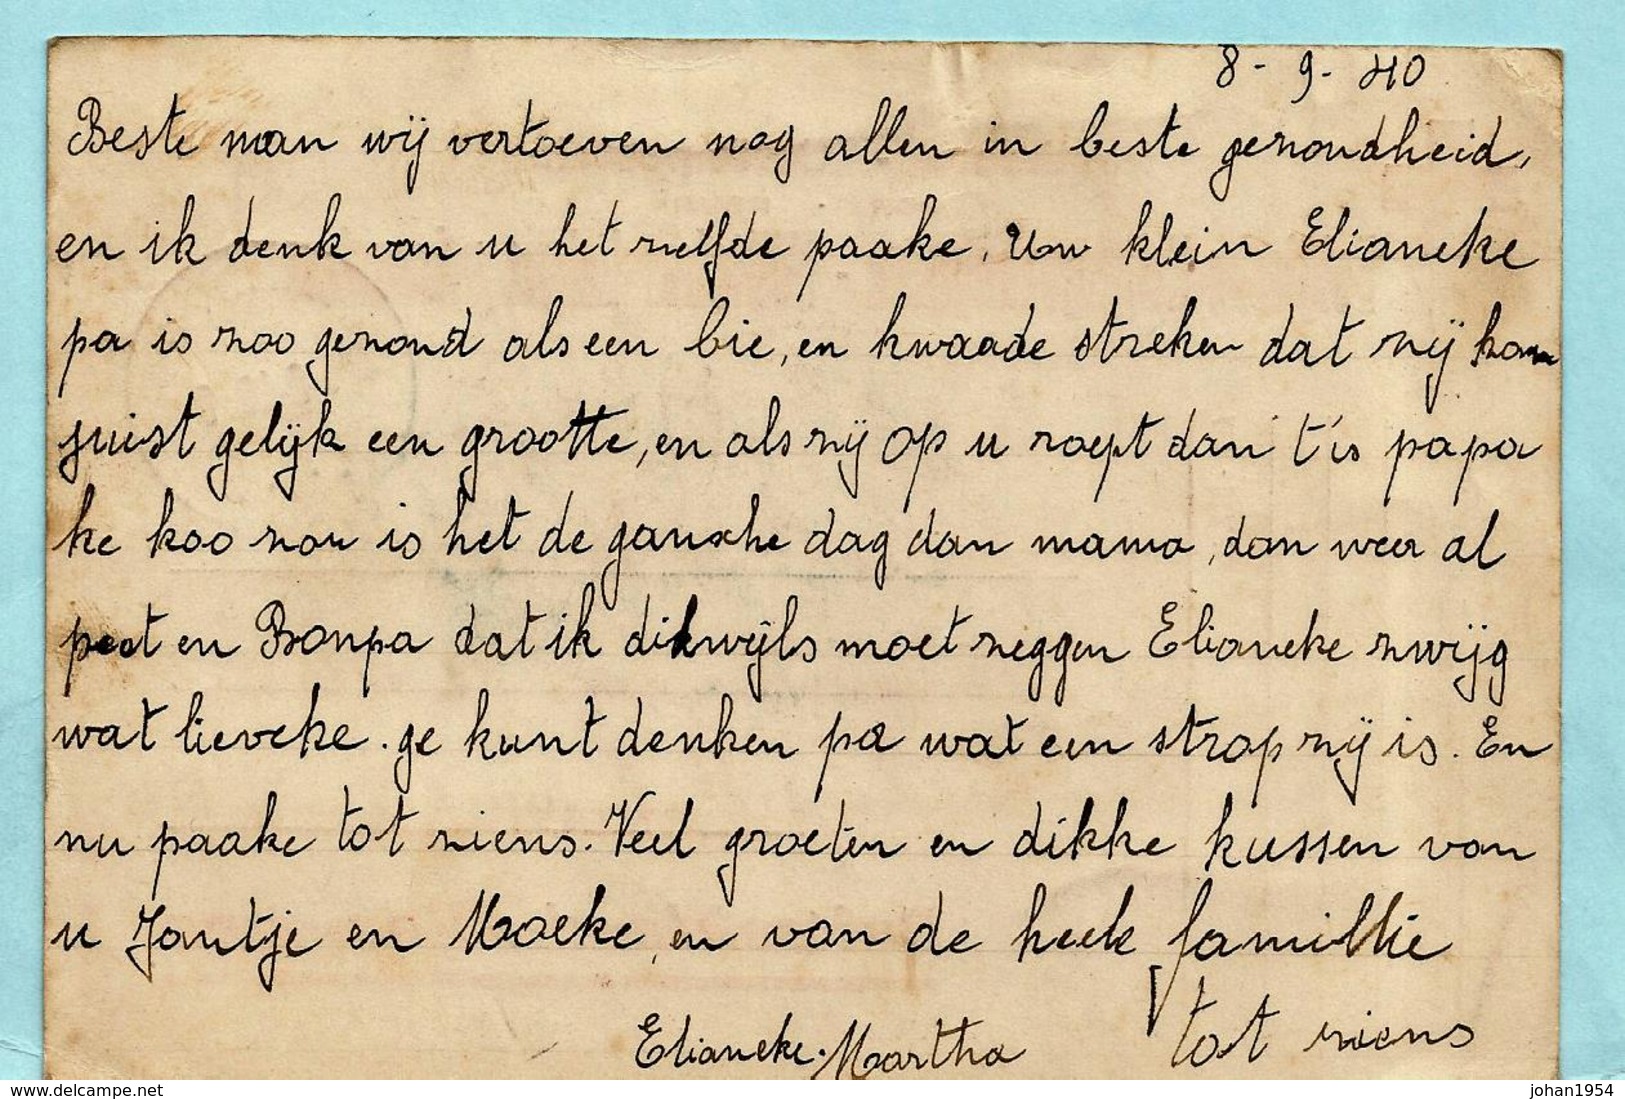 8 - 9 - 40
Beste man wij vertoeven nog allen in beste gezondheid,
en ik denk van u het zelfde paake. Uw klein Elianeke
pa is zoo gezond als een bie, en kwaade streken dat zij kan
juist gelijk een grootte, en als zij op u roept dan t'is papa
ke koo zoo is het de gansche dag dan mama, dan weer al
peet en Bonpa dat ik dikwijls moet zeggen Elianeke zwijg
wat lieveke. ge kunt denken pa wat een strop zij is. En
nu paake tot ziens. Veel groeten en dikke kussen van
u Jantje en Moeke, en van de heele famillie
Elianeke. Martha tot ziens
johan1954